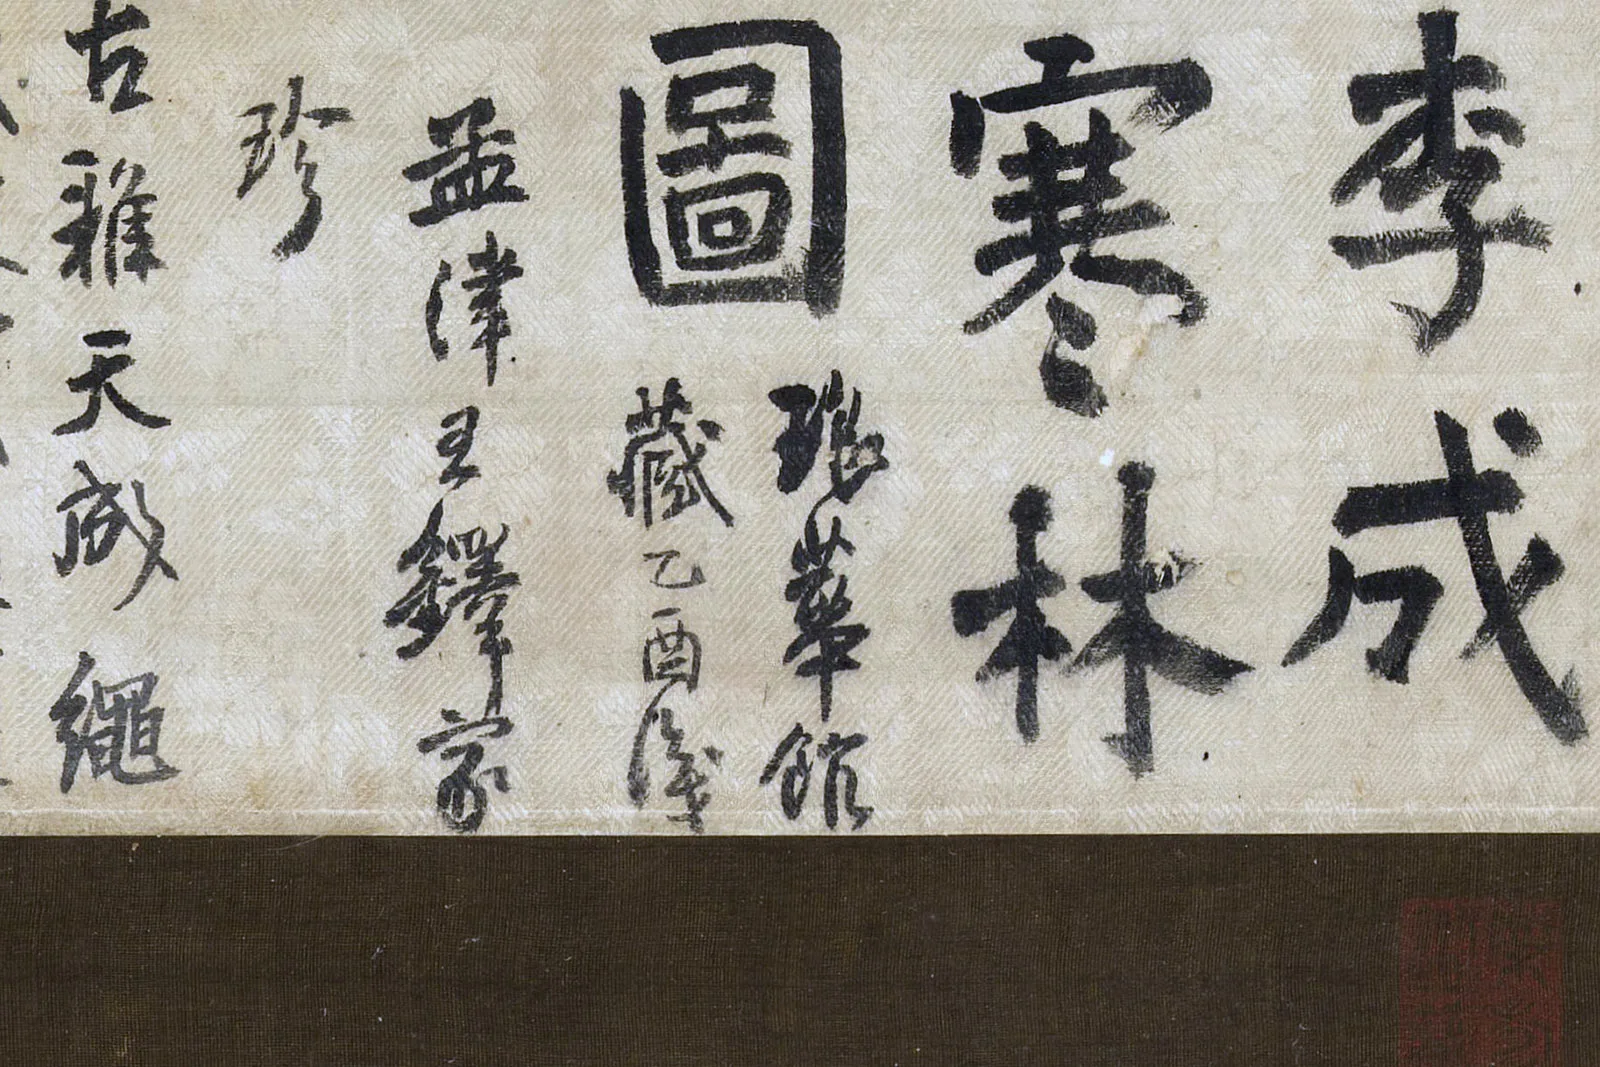 李成
寒林
圖
琅華館
藏乙酉後
孟津王鐸家
珍
古雅天成繩